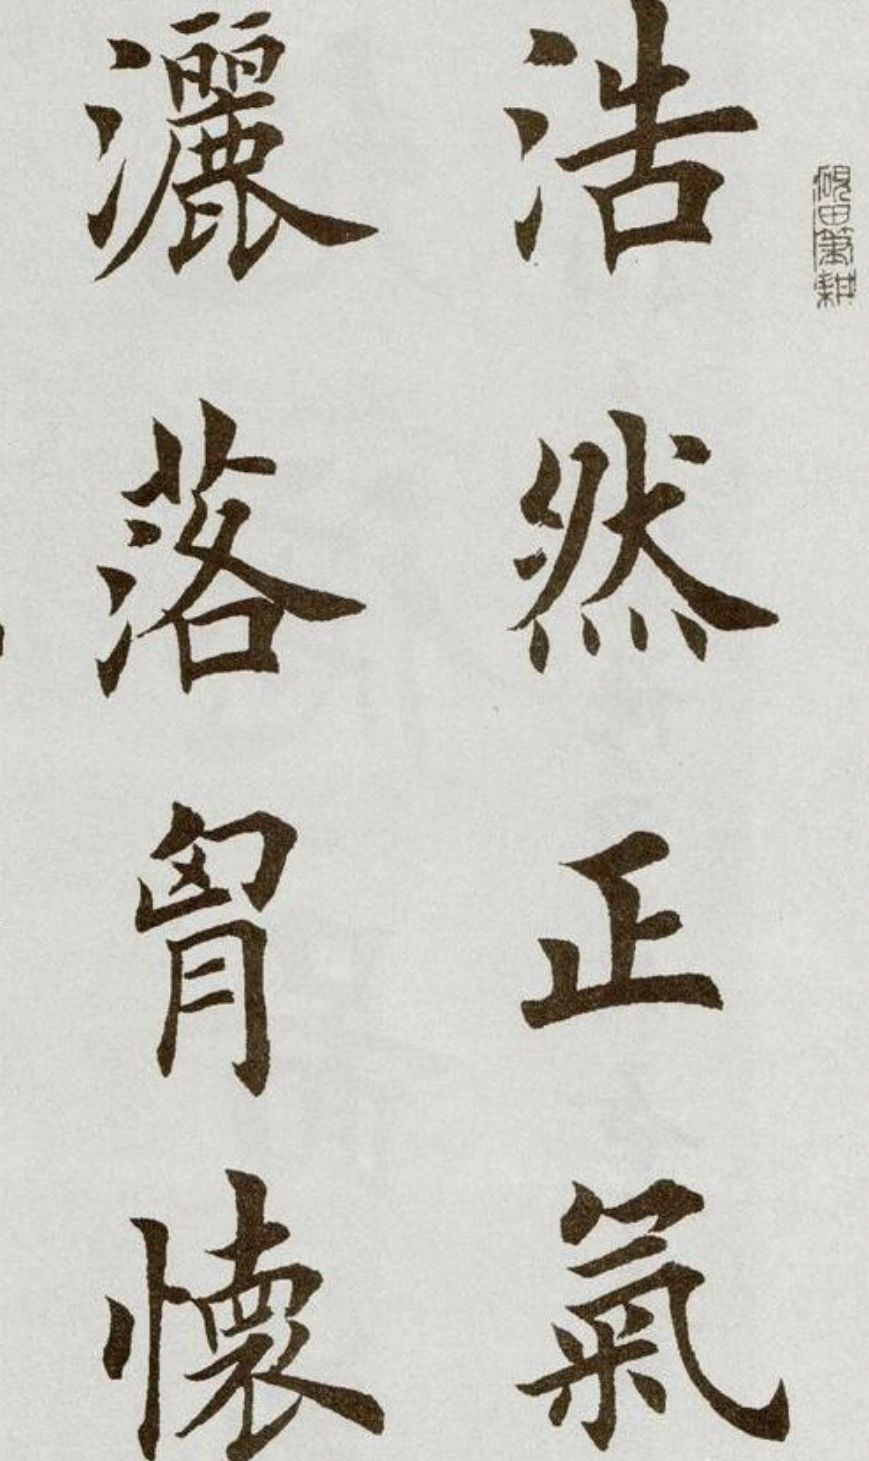 硯田筆耕
浩然正氣
灑落胷懷